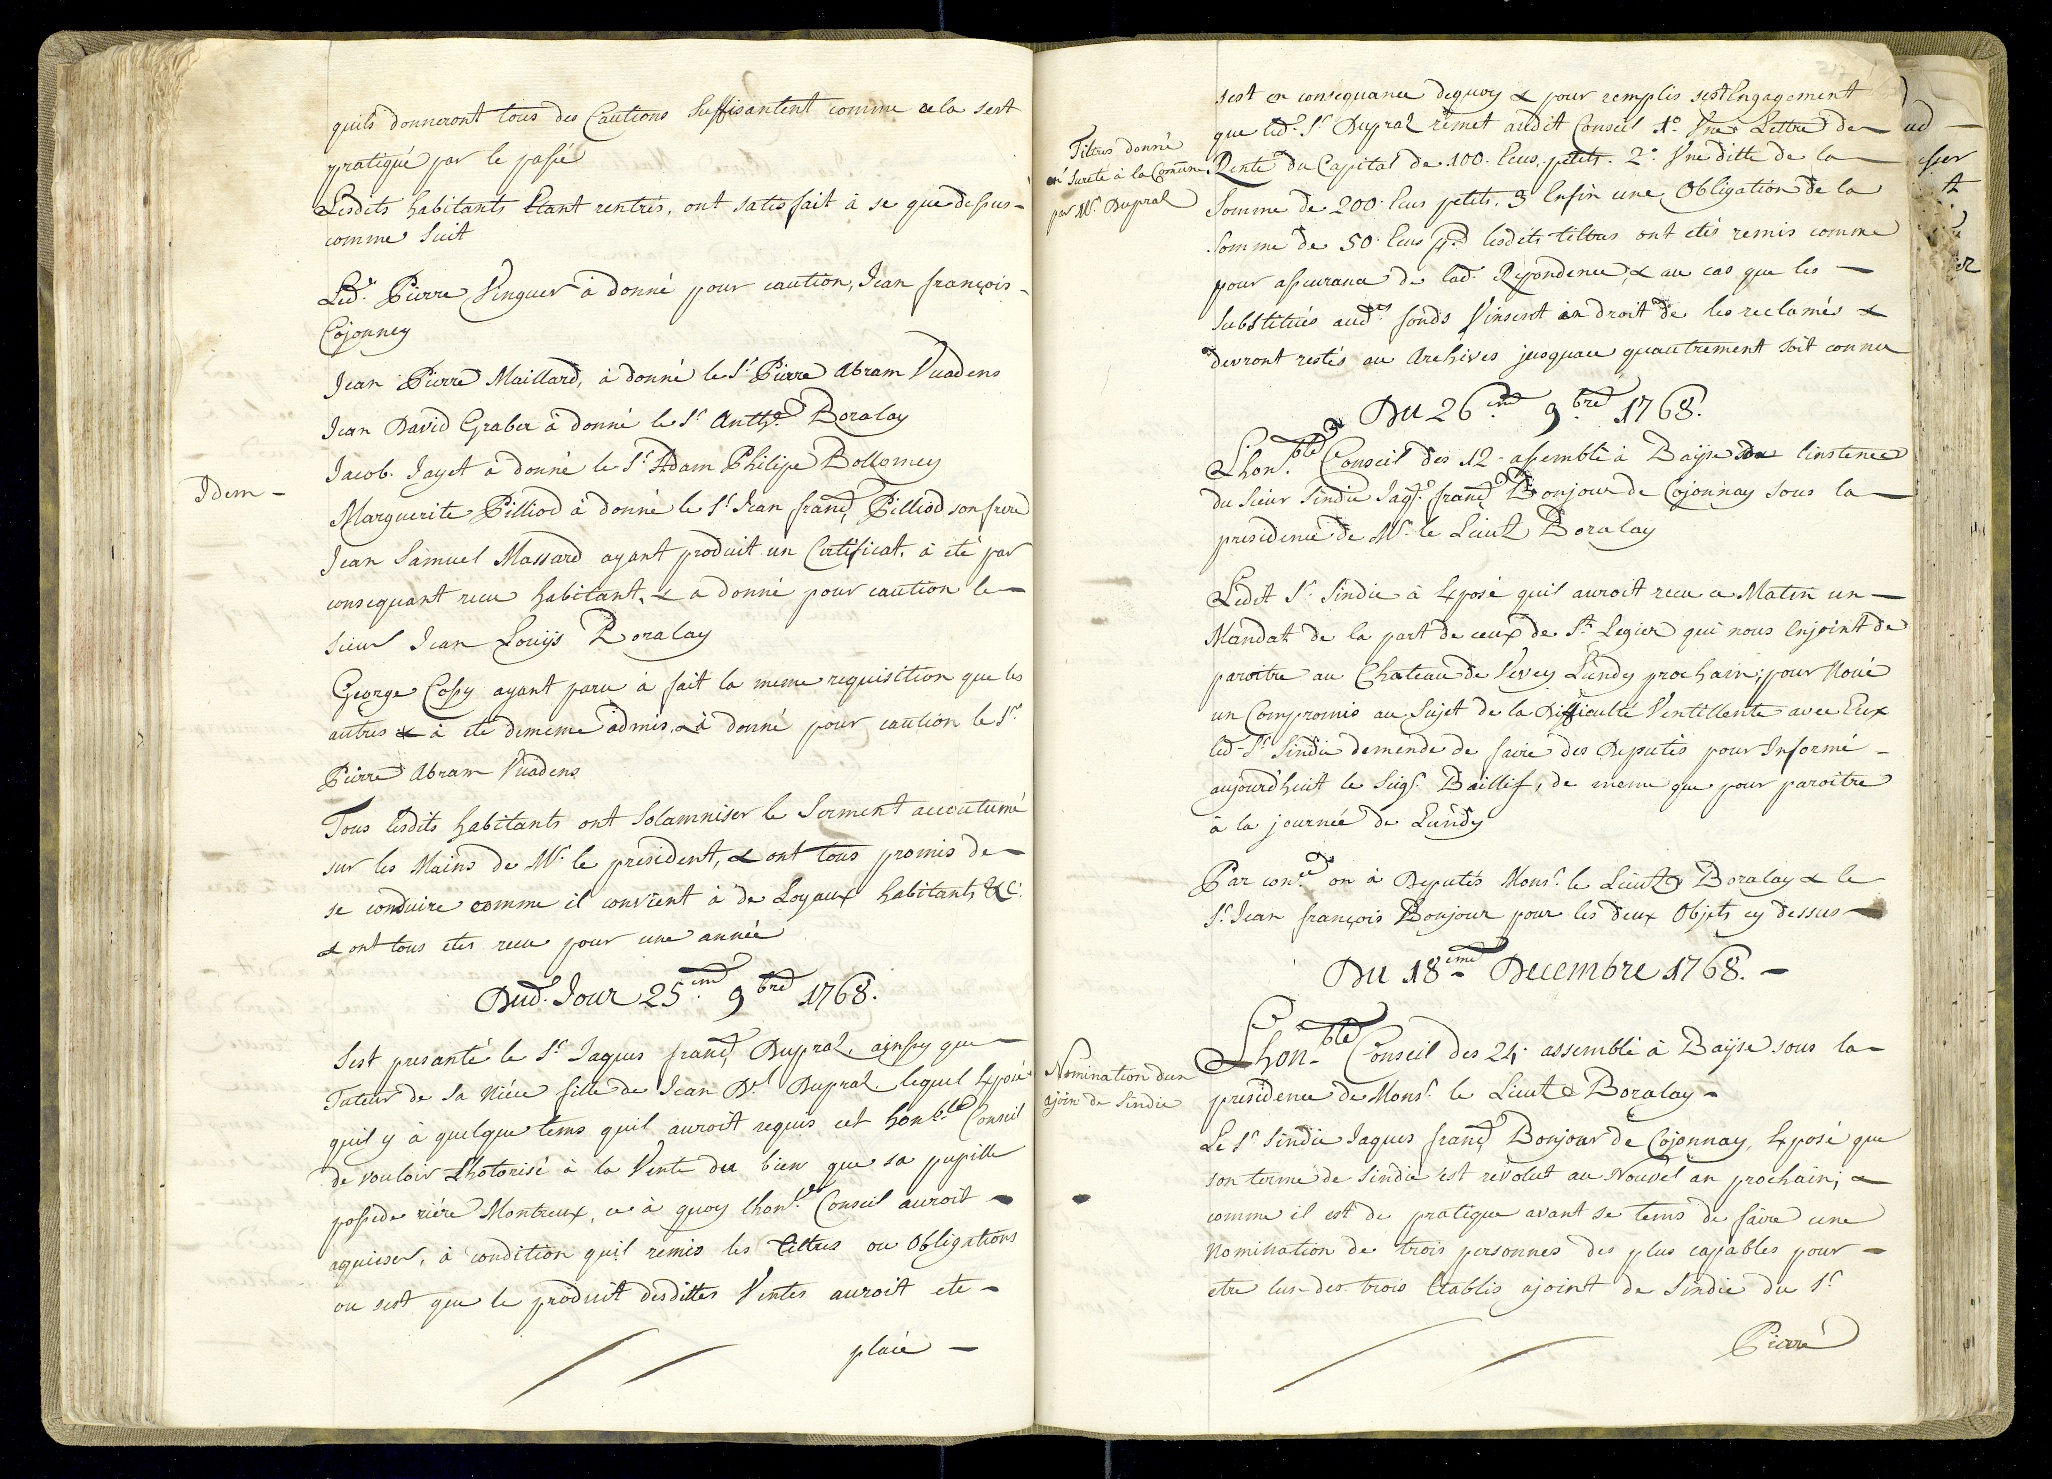 quils donneront tous des Cautions Suffisantent comme cela sest
pratiqué par le passé
Lesdits habitants Etant rentrés, ont satisfait à se que dessus -
comme suit
Led.t Pierre Vinguer à donné pour caution, Jean françois -
Cojonney
Jean Pierre Maillard, à donné le S.r Pierre Abram Vuadens
Jean David Graber à donné le S.r Anth.e Boralay
Jacob Jayet a donné le S.r Adam Philipe Bollomey
Idem -
Marguerite Pilliod à donné le S.r Jean franç. Pilliod son frere
Jean Samuel Massard ayant produit un Certificat, à été par
consequant recu habitant, & a donné pour caution le -
sieur Jean Louijs Boralay
George Cossy ayant paru à fait la meme requisition que les
autres & à eté dememe admis, & à donné pour caution le S.r
Pierre Abram Vuadens
Tous lesdits habitants ont Solamniser le Serment accoutumé
sur les Mains de Mr. le president, & ont tous promis de -
se conduire comme il convient à de Loyaux habitants &c:
& ont tous etes recu pour une année
Dud. Jour 25.me 9bre 1768.
Sest presanté le S.r Jaques franç. Dupraz, ainssy que -
Tuteur de sa Niéce fille de Jean D.d Dupraz lequel Exposé
quil y à quelque tems quil auroit requis cet hon.ble Conseil
de vouloir Lhotorisé à la Vente du bien que sa pupille
possede riére Montreux, ce à quoy lhon.ble Conseil auroit -
aquieser, à condition quil remis les tiltres ou Obligations
ou sest que le produit desdittes Ventes auroit ete -
placé -
sest en consequance dequoy & pour remplis sest Engagement
Tiltres donné
en Sureté à la Comune
par Mr. Dupraz
que led. S.r Dupraz remet audit Conseil 1.o Une Lettre de -
Rente du Capital de 100. Ecus, petits. 2.o Une ditte de la -
Somme de 200. Ecus petits. 3 Enfin une Obligation de la
Somme de 50. Ecus p.d lesdits tiltres ont etés remis comme
pour assurance de lad. Repondence, & au cas que les -
Substitués aud.s fonds Vinsent en droit de les reclamés &
devront restés au Archives jusquau quautrement soit connu
Du 26.me 9.bre 1768.
Lhon.ble Conseil des 12 assemblé à Baijse a linstence
du Sieur Sindic Jaq.s franç. Bonjour de Cojonnay sous la -
presidence de Mr. le Lieut. Boralay
Ledit S.r Sindic à Exposé quil auroit recu ce Matin un -
Mandat de la part de ceux de S.t Legier qui nous Enjoint de
paroitre au Chateau de Vevey Lundy prochain; pour Noué
un Compromis au Sujet de la Difficulté Ventillente avec Eux
led. S.r Sindic demende de faire des Deputés pour Informé -
aujourdhuit le Seig.r Baillif, de meme que pour paroitre
à la journée de Lundy
Par con.ce on à Deputés Mons.r le Lieut. Boralay & le
S.r Jean françois Bonjour pour les deux Objets cy dessus -
Du 18.eme Decembre 1768. -
Lhon.ble Conseil des 24. assemblé à Baijse sous la -
Nomination dun
ajoin de Sindic
presidence de Mons.r le Lieut. Boralay -
Le S.r Sindic Jaques franç. Bonjour de Cojonnay, Exposé que
son terme de Sindic est revolut au Nouvel an prochain; &
comme il est de pratique avant se tems de faire une
Nomination de trois personnes des plus capables pour -
etre lun des trois Etablis ajoint de Sindic du S.r
Pierre